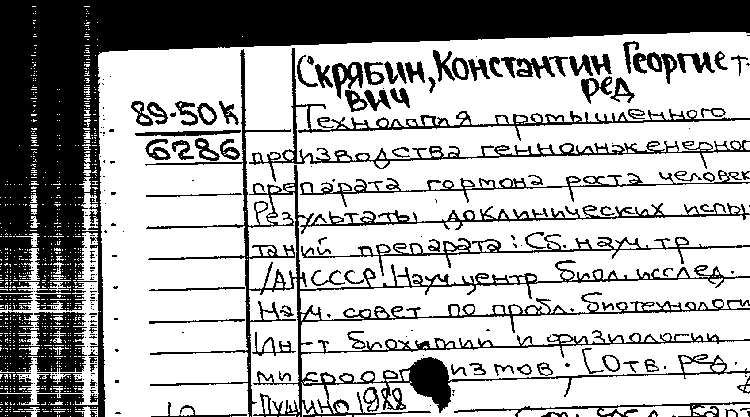 Скрябин, Константин Георгие
вич ред
89-50К
Технология промышленного
6286
производства генноинженерног
препарата гормона роста человек
Результаты доклинических испы
таний препарата: Сб. науч. тр.
/АНСССР! Науч. центр биол. исслед.
Науч. совет по пробл. биотехнологи
Ин-т биохимии и физиологии
микроорганизмов. [Отв. ред.
Пущино, 1988